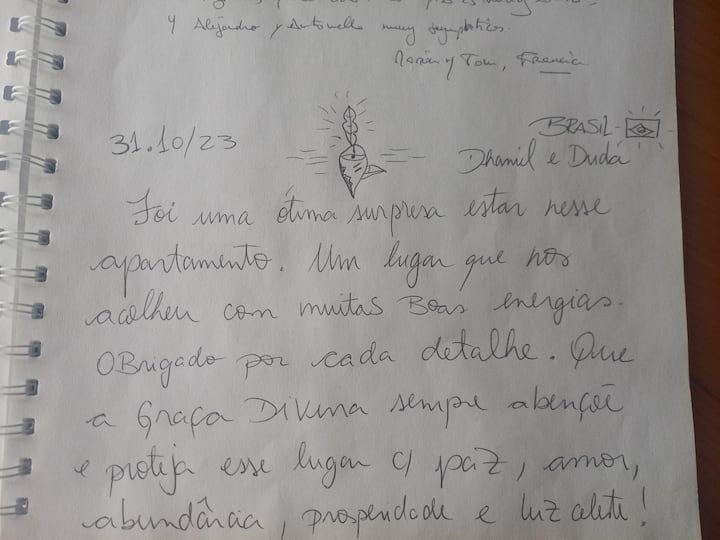 Y Alejandro y Antonella muy simpáticos.
María y Tom, Francia
31.10/23
BRASIL
Dhamil e Duda
Foi uma ótima surpresa estar nesse
apartamento. Um lugar que nos
acolheu com muitas Boas energias.
OBrigado por cada detalhe. Que
a Graça Divina sempre abençoe
e proteja esse lugar c/ paz, amor,
abundância, prosperidade e luz celeste!